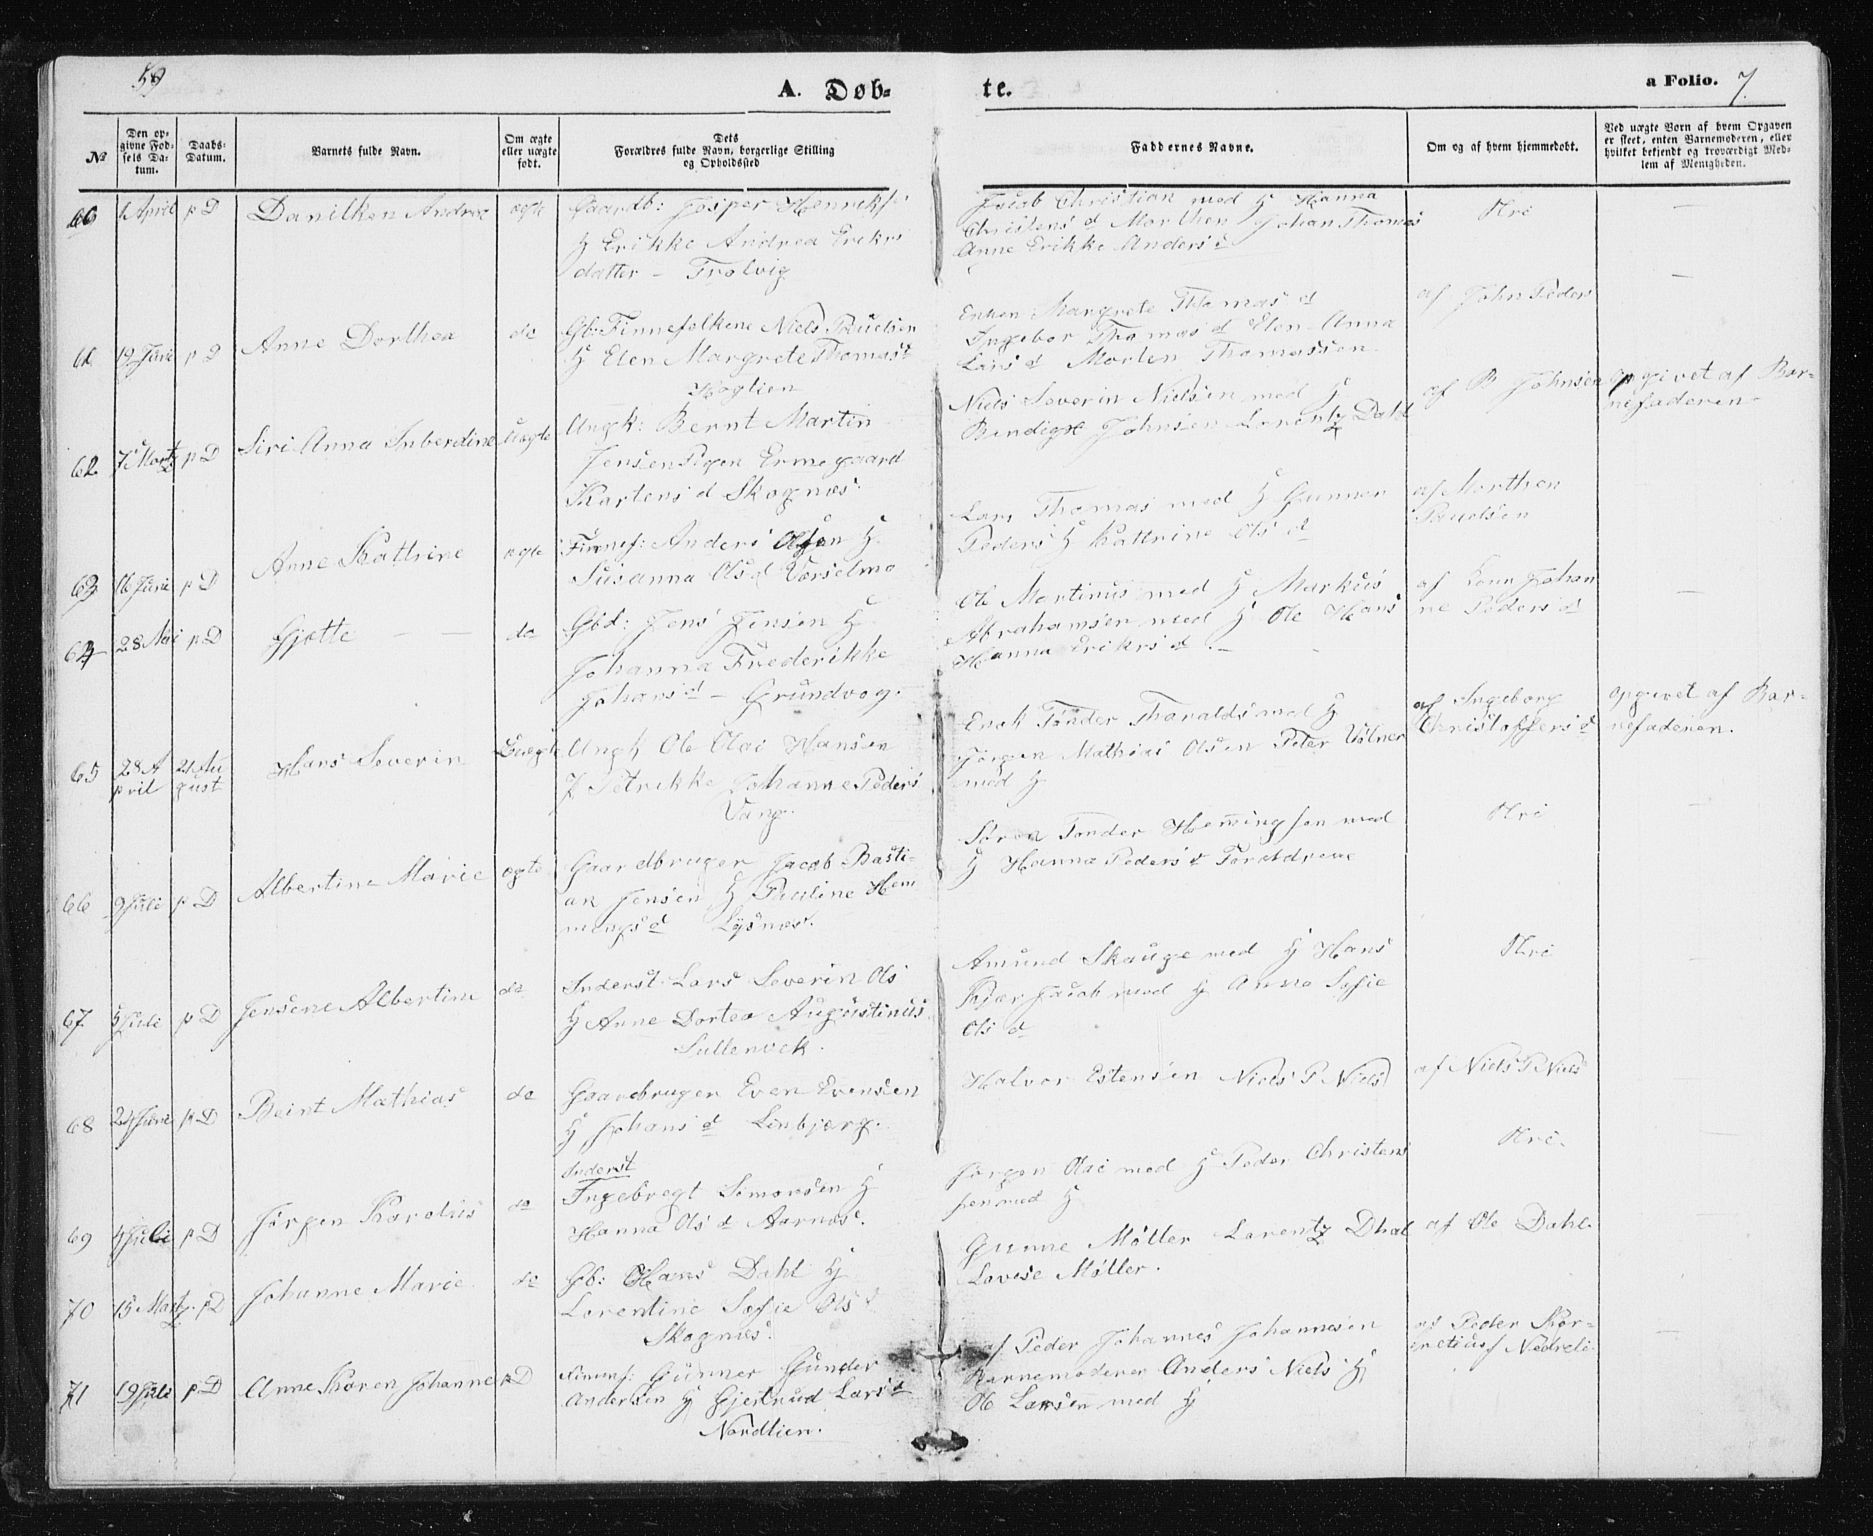 59
A. Døb-
te.
a Folio. 7.
No
Den op-
givne Fød-
sels Da-
tum.
Daabs-
Datum.
Barnets fulde Navn.
Om ægte
eller uægte
født.
Dets
Forældres fulde Navn, borgerlige Stilling
og Opholdssted
Faddernes Navne.
Om og af hvem hjemmedøbt.
Ved uægte Børn af hvem Opgaven
er skeet, enten Barnemoderen, eller
hvilket bekjendt og troværdigt Med-
lem af Menigheden.
60 April p D Danilken Andrea ægte Gaardb: Jesper Henrikf
H Erikke Andrea Eriks
datter - Trolvig
Jacob Christian med H Hanna
Christens d Morthen Johan Thomas
Anne Erikke Anders d
Kri
61 19 Juni p D Anne Dorthea do Gb: Finnefolkene Niels Paulsen
H Elen Margrete Thomas d
Høglien
Enken Margrete Thomas d
Ingebor Thomas d Elen Anna
Lars d Morten Thomassen
af John Peders
62 7 Martz p D Siri Anna Inberdine Uægte Ungk: Bernt Martin
Jensen Pigen Ermegaard
Kartens d Skognæs.
Niels Severin Nielsen med H
Bendigt Johnsen Lorentz Dahl
af B Johnsen
opgivet af Bar-
nefaderen
63 16 Juni p D Anne Kattrine ægte Finnef: Anders Olsen H
Susanna Ols d Værselmo
Lars Thomas med H Gunner
Peders H Kattrine Ols d
af Morthen
Paulsen
64 28 Mai p D Gjøtte do Gbd: Jens Jensen H
Johanna Frederikke
Johans d - Grundvog.
Ole Martinus med H Markus
Abrahamsen med H Ole Hans
Hanna Eriks d
af Kone Johan
ne Peders d
65 28 A
pril
21 Au
gust
Hans Severin Uægte Ungk Ole Olai Hansen
P Petrikke Johanne Peders
Vang.
Enok Tønder Tharalds med H
Jørgen Mathias Olsen Peter Volner
med H
af Ingeborg
Christoffers d
opgivet af Bar-
nefaderen.
66 9 Juli p D Albertine Marie ægte Gaardbruger Jacob Basti-
an Jensen H Pauline Hem
mings d Lysnæs.
Søren Tønder Hemingsen med
H Hanna Peders d Forældrene
Kri
67 5 Juli p D Jensene Albertine do Inderst: Lars Severin Ols
H Anne Dortea Augustinus
Sultenvek.
Amund Skauge med H Hans
Kjær Jacob med H Anna Sofie
Ols d
Kri
68 24 Juni p D Beint Mathias do Gaardbruger Even Evensen
H Johans d Linbjerg.
Halvor Estensen Niels P Niels
af Niels P Niels
69 4 Juli p D Jørgen Karolius do Inderst
Ingebregt Simonsen H
Hanna Ols d Aarnæs.
Jørgen Olai med H Peder Christens
sen med H
Kri.
70 15 Martz p D Johanne Marie do Gb: Hans Dahl H
Lorentine Sofie Ols d
Skognæs.
Gunne Møller Lorentz Dhal
Lovise Møller.
af Ole Dahl
71 19 Juli p D Anne Karen Johanne p D Finnf: Gunner Gunder
Andersen H Gjertrud Lars d
Nordlien.
af Peder Johannes Johannesen
Barnemoderen Anders Niels H
Ole Larsen med H
af Peder Kor-
neliusf Nedreli